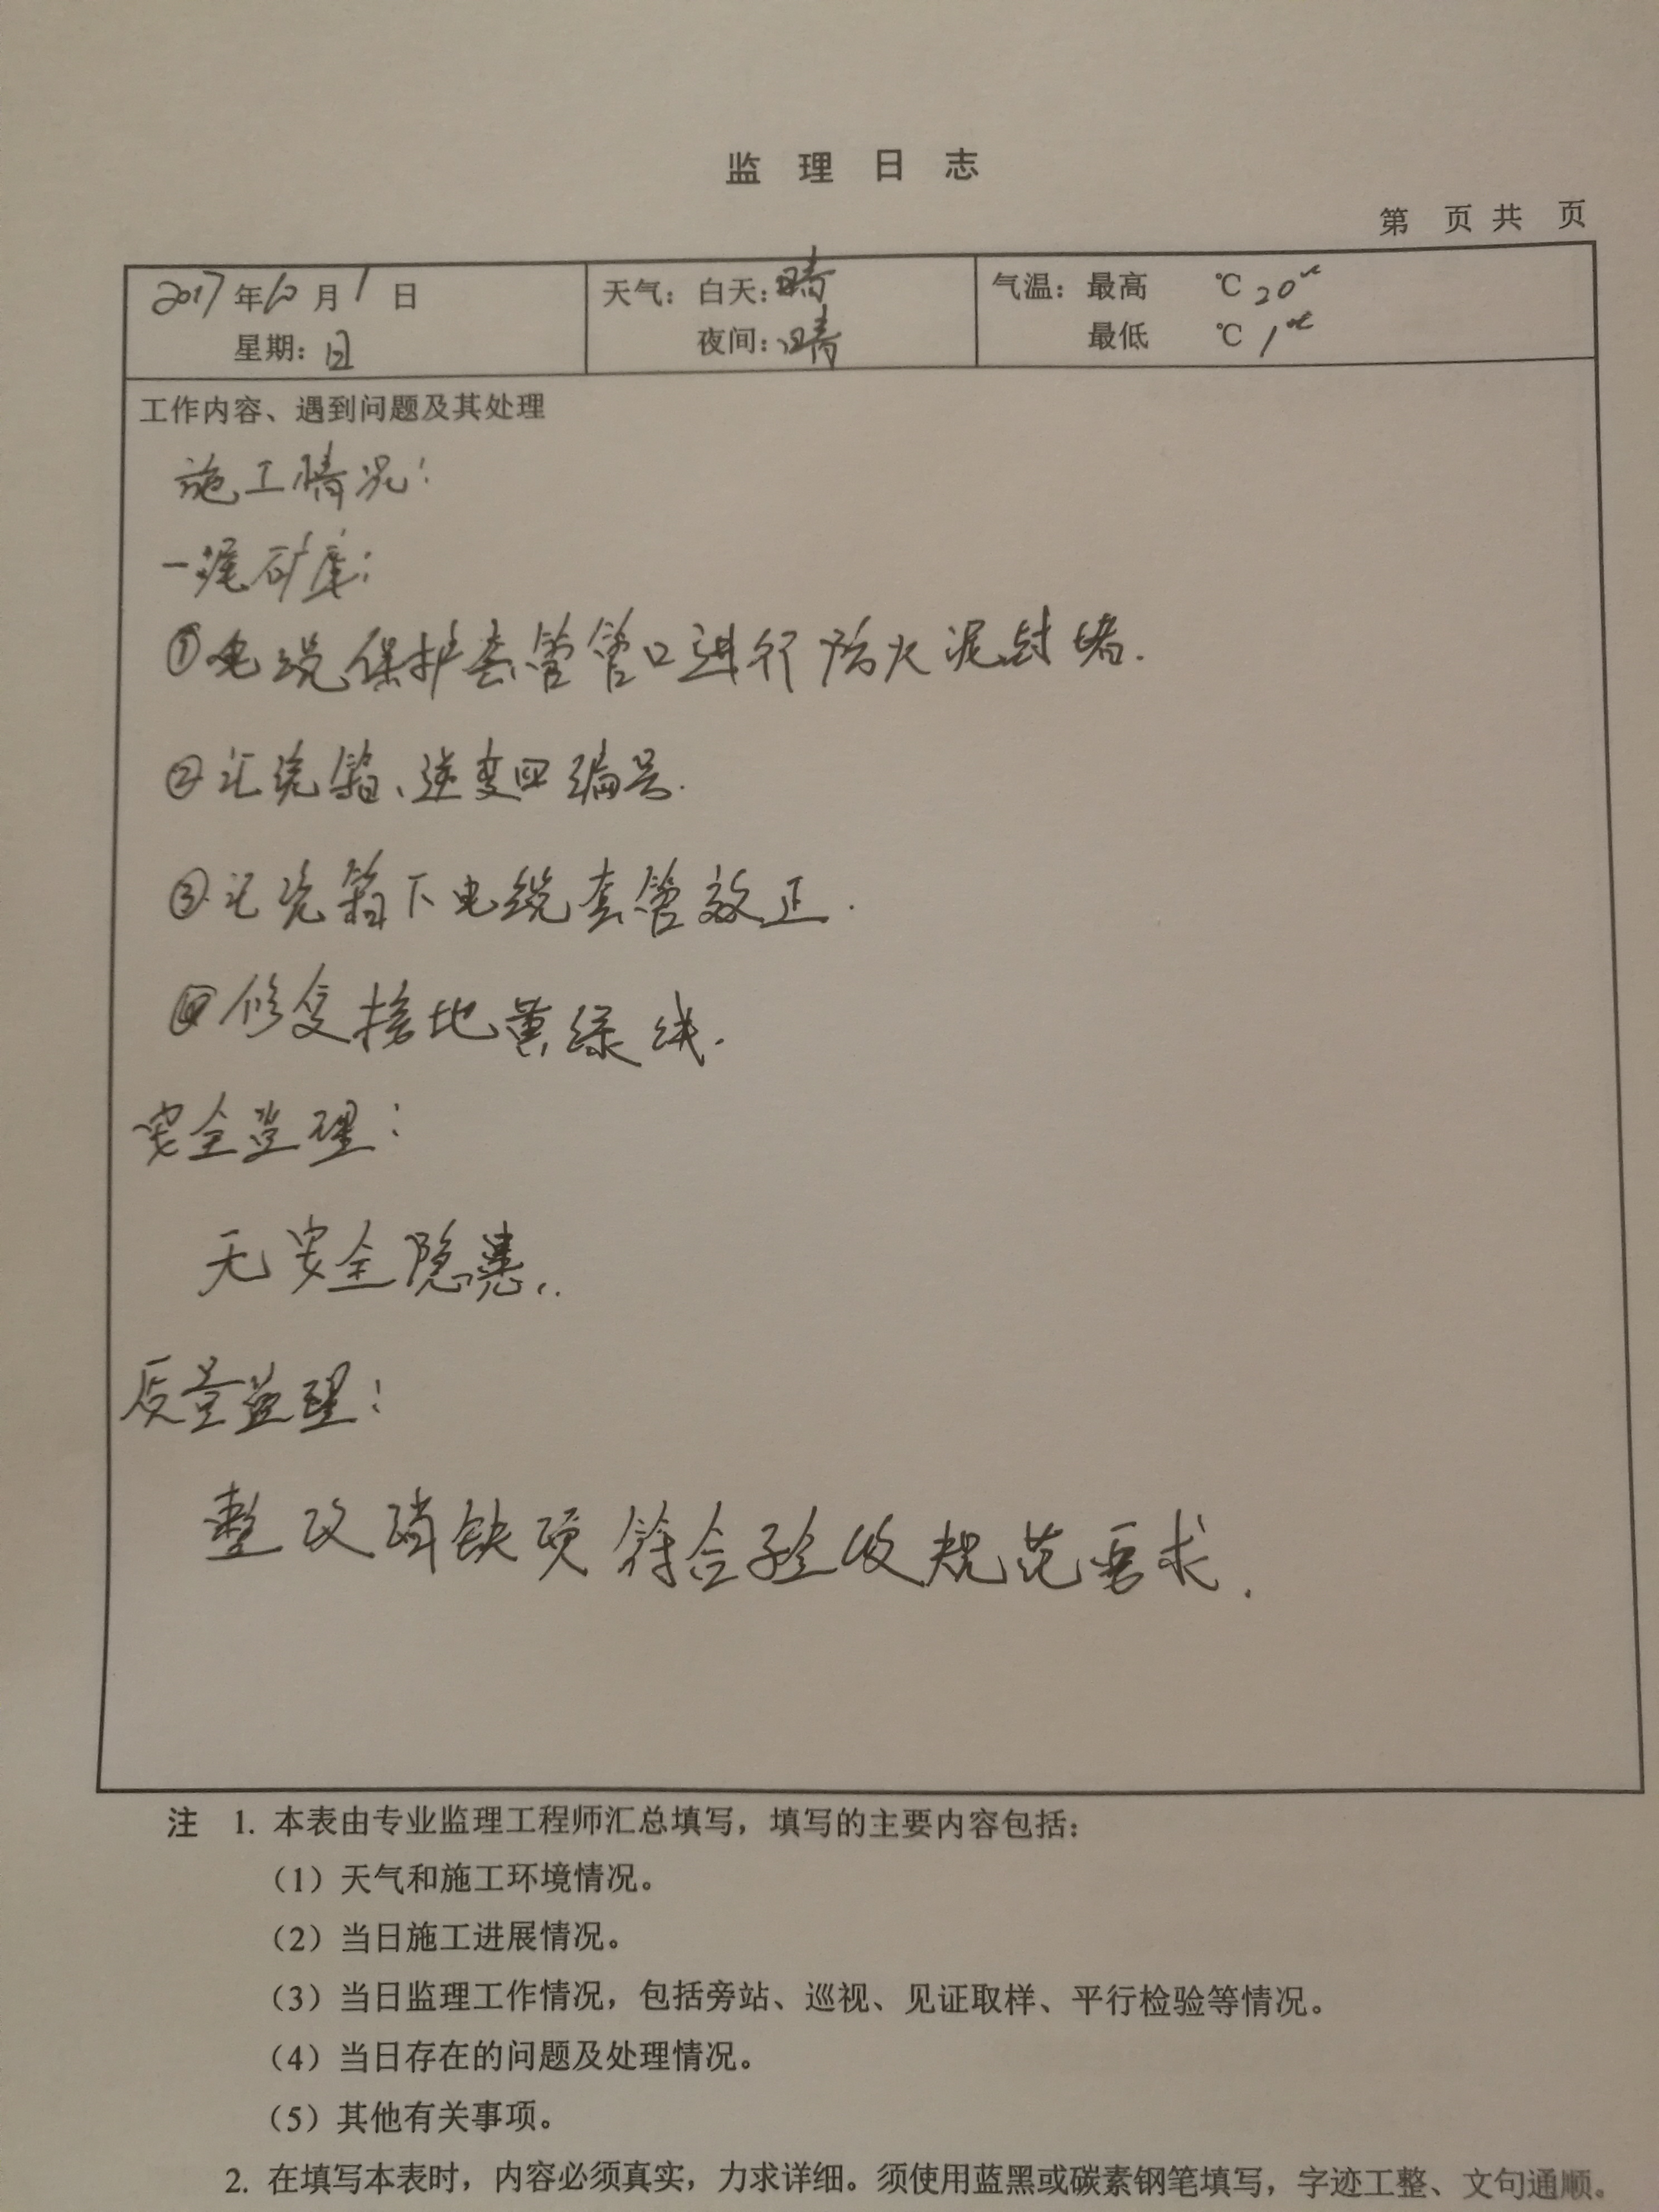 监 理 日 志
第 页 共 页
2017年10月1日
星期：日
天气：白天：晴
夜间：晴
气温：最高 ℃ 20℃
最低 ℃ 1℃
工作内容、遇到问题及其处理
施工情况：
一尾矿库：
①电缆保护套管管口进行防火泥封堵.
②汇流箱、逆变四编号.
③汇流箱下电缆套管放正.
④修复接地黄绿线.
安全监理：
无安全隐患.
质量监理：
整改消缺项符合验收规范要求.
注 1. 本表由专业监理工程师汇总填写，填写的主要内容包括：
（1）天气和施工环境情况。
（2）当日施工进展情况。
（3）当日监理工作情况，包括旁站、巡视、见证取样、平行检验等情况。
（4）当日存在的问题及处理情况。
（5）其他有关事项。
2. 在填写本表时，内容必须真实，力求详细。须使用蓝黑或碳素钢笔填写，字迹工整、文句通顺。